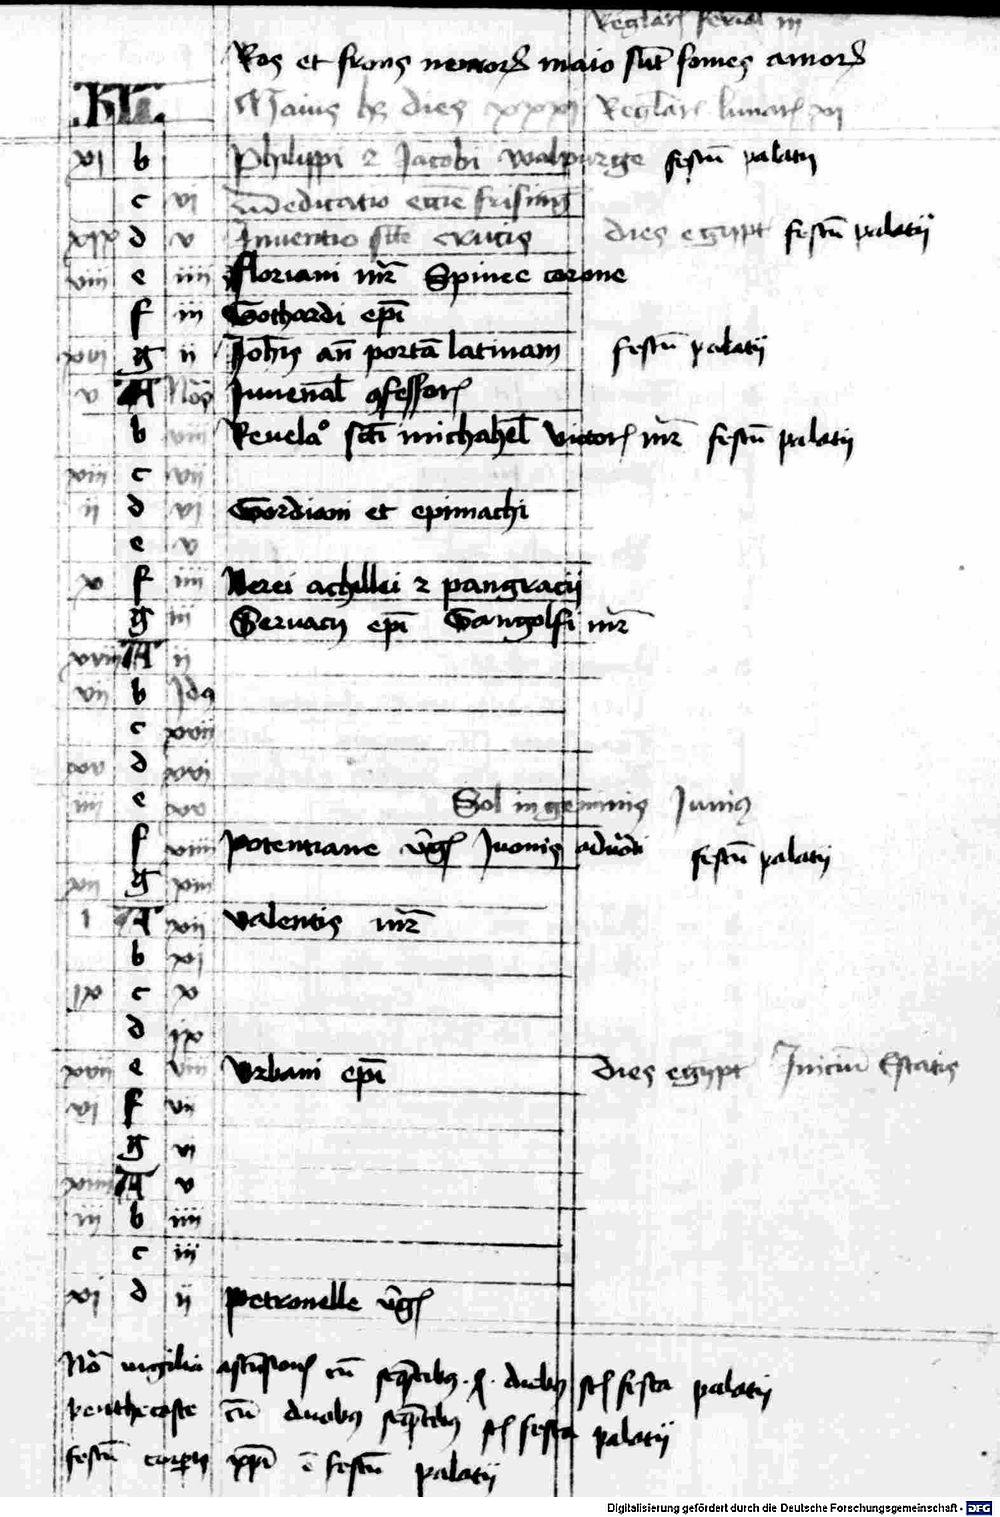 Reglar feriał iii
Ros et frons nemorꝝ maio sūt fomes amorꝝ
KL Maius hꝫ dies xxxi Reglar lunar xi
xi b Philippi ⁊ Jacobi walpurge festū palatij
c vi dedicatio ecc̄ie frising
xix d v Inuentio scte crucis dies egypt festū palatij
viii e iiii floriani mr̄ Spinee corone
f iii Gothardi ep̄i
xvi g ii Joh̄is an̄ portā latinam festū palatij
v A Non Juuenal ꝯfessor
b viii Reuelaº scti michahel victor mr̄ festū palatij
xiii c vii
ii d vi Gordiani et epimachi
e v
x f iiii Nerei achillei ⁊ pangracij
g iii Seruacij ep̄i Gangolfi mr̄
xviii A ii
vii b Idꝰ
c xvii
xv d xvi
iiii e xv Sol in geminis Juniꝰ
f xiiii potentiane v̄g Juonis aduoti festū palatij
xii g xiii
i A xii valentis mr̄
b xi
ix c x
d ix
xvii e viii Vrbani ep̄i dies egypt Iniciū Estatis
vi f vii
g vi
xiiii A v
iii b iiii
c iii
xi d ii Petronelle v̄g
Nō vigilia ascēsion cū seqn̄tibꝰ duebꝰ st festa palatij
penthecoste cū duobꝰ seqn̄tibꝰ st festa palatij
festū corpis xp̄i ē festū palatij
Digitalisierung gefördert durch die Deutsche Forschungsgemeinschaft - DFG